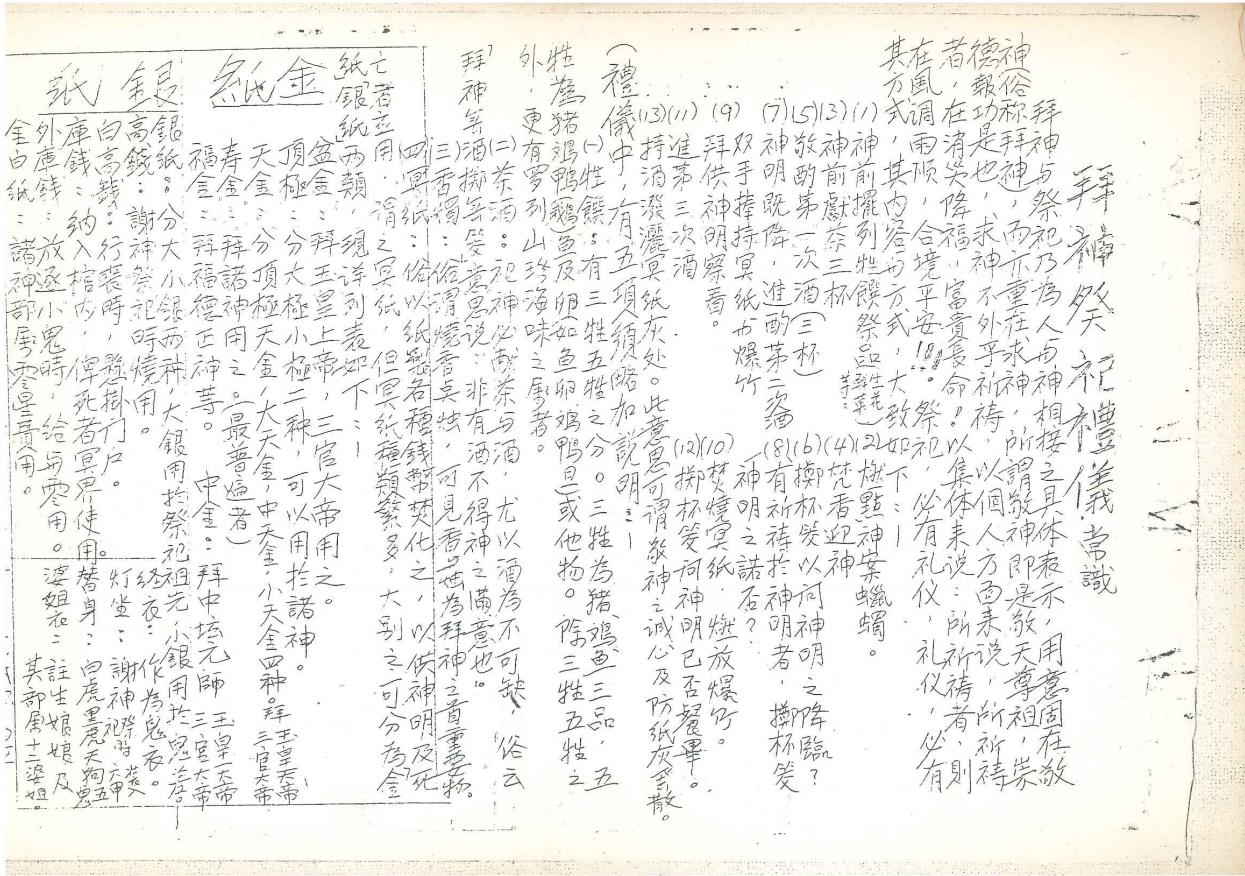 拜神祭祀禮儀常識
拜神与祭祀乃為人与神相接之具体表示，用意固在敬
神俗称拜神，而亦重在求神，所謂敬神即是敬天尊祖，崇
德報功是也，求神不外乎祈祷，以個人方面来说，所祈祷
者，在消災降福，富貴長命！以集体来说：所祈祷者，則
在風调雨顺，合境平安！。祭祀，必有礼仪，礼仪，必有
其方式，其内容与方式，大致如下：—
(1)神前擺列牲饌祭品(生花鮮菓等…
(2)燃點神案蠟蠋。
(3)神前獻茶三杯
(4)焚香迎神
(5)敬酌第一次酒(三杯)
(6)擲杯筊以问神明之降臨？
(7)神明既降，進酌第二次酒
(8)有祈祷於神明者，擲杯筊
神明之諾否？
(9)双手捧持冥纸与爆竹
拜供神明察看。
(10)焚燒冥纸．燃放爆竹。
(11)進第三次酒
(12)擲杯筊问神明已否餐畢。
(13)持酒潑灑冥纸灰处。此意思可谓敬神之诚心及防纸灰飛散。
(禮儀中，有五項須略加說明：—
(一)牲饌：有三牲五牲之分。三牲為猪鸡鱼三品，五
牲為猪鸡鴨(鵝)鱼及卵如鱼卵鸡鴨旦)或他物。除三牲五牲之
外，更有罗列山珍海味之属者。
(二)茶酒：祀神必献茶与酒 尤以酒為不可缺，俗云
拜神無酒擲無筊意思说：非有酒不得神之滿意也。
(三)香燭：俗谓燒香点烛，可見香烛為拜神之首重要物。
(四)冥纸：俗以纸製各種錢幣焚化之，以供神明及死
亡者立用，谓之冥纸，但冥纸種類繁多，大别之可分為金
紙「銀紙」两類，現详列表如下：—
金紙
盆金：拜玉皇上帝，三官大帝用之。
頂極：分大極小極二种，可以用於諸神。
天金：分頂極天金，大天金，中天金，小天金四种。拜玉皇大帝 三官大帝
寿金：拜諸神用之。(最普遍者)
福金：拜福德正神等。
中金：拜中坛元師 玉皇大帝 三官大帝
銀紙
銀纸：分大小銀两种，大銀用於祭祀祖先 小銀用於鬼差。
高錢：謝神祭祀時燒用。
白高錢：行喪時，懸掛门户。
庫錢：納入棺内，俾死者冥界使用。
外庫錢：放逐小鬼時，给与零用。
金白紙：諸神部属零星賞用。
经衣：作為鬼衣。
灯坐：謝神祭祀時
替身：白虎黑虎天狗五鬼
婆姐衣：註生娘娘及
其部属十二婆姐。